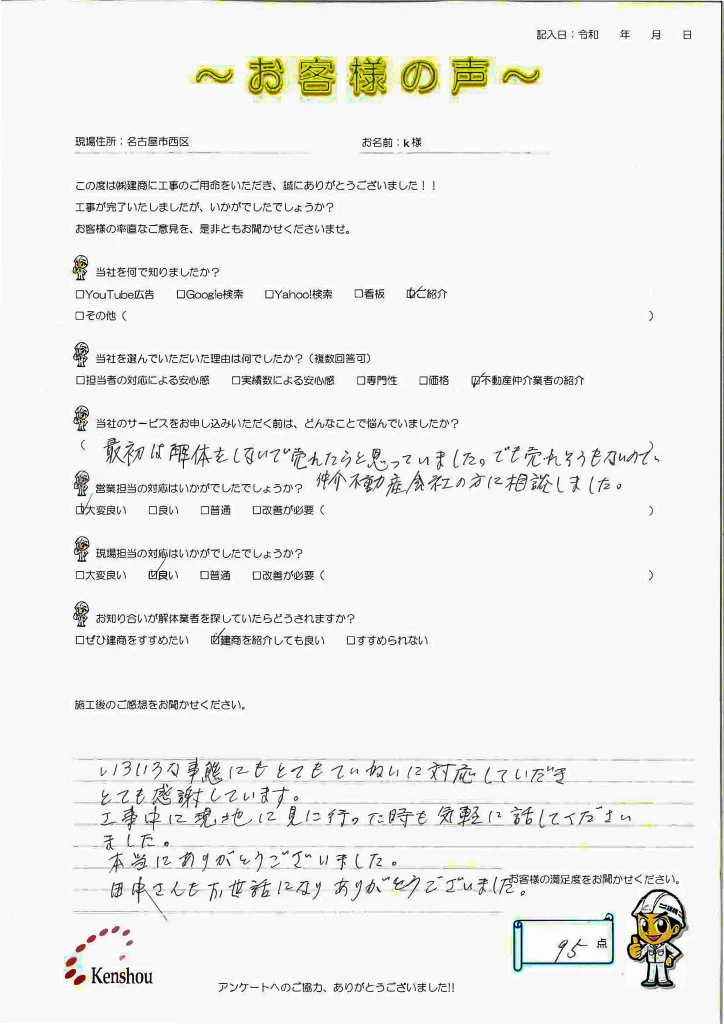 記入日：令和　　年　　月　　日
～お客様の声～
現場住所：名古屋市西区　　お名前：k様
この度は㈱建商に工事のご用命をいただき、誠にありがとうございました！！
工事が完了いたしましたが、いかがでしたでしょうか？
お客様の率直なご意見を、是非ともお聞かせくださいませ。
当社を何で知りましたか？
□YouTube広告　□Google検索　□Yahoo!検索　□看板　☑ご紹介
□その他（　　　）
当社を選んでいただいた理由は何でしたか？（複数回答可）
□担当者の対応による安心感　□実績数による安心感　□専門性　□価格　☑不動産仲介業者の紹介
当社のサービスをお申し込みいただく前は、どんなことで悩んでいましたか？
（最初は解体をしないで売れたらと思っていました。でも売れそうもないので、）
仲介不動産会社の方に相談しました。
営業担当の対応はいかがでしたでしょうか？
☑大変良い　□良い　□普通　□改善が必要（　　　）
現場担当の対応はいかがでしたでしょうか？
□大変良い　☑良い　□普通　□改善が必要（　　　）
お知り合いが解体業者を探していたらどうされますか？
□ぜひ建商をすすめたい　☑建商を紹介しても良い　□すすめられない
施工後のご感想をお聞かせください。
いろいろな事態にもとてもていねいに対応していただき
とても感謝しています。
工事中に現地に見に行った時も気軽に話してください
ました。
本当にありがとうございました。
田中さんもお世話になりありがとうございました。
お客様の満足度をお聞かせください。
95点
Kenshou
アンケートへのご協力、ありがとうございました!!